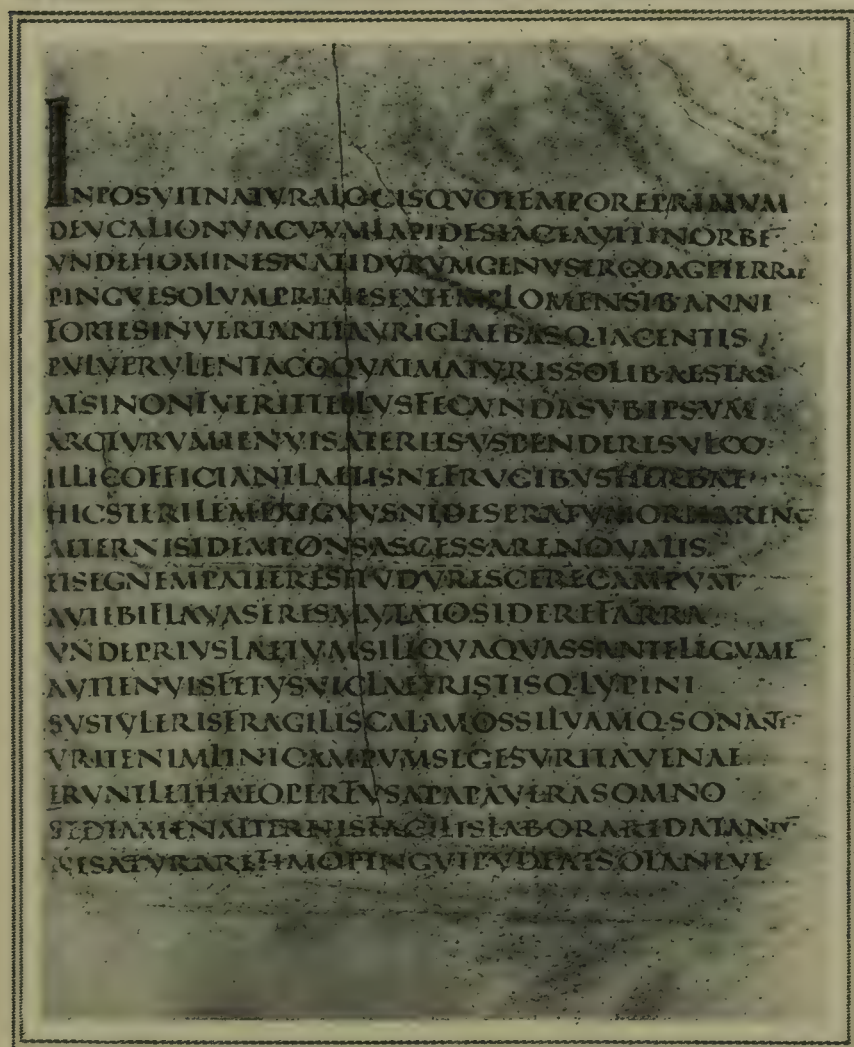 INPOSVITNATVRALOCISQVOTEMPOREPRIMVM
DEVCALIONVACVVMLAPIDESIACTAVITINORBE
VNDEHOMINESNATIDVRVMGENVSERGOAGETERRAE
PINGVESOLVMPRIMISEXTEMPLOMENSIB·ANNI
FORTESINVERTANTTAVRIGLAEBASQ·IACENTIS
PVLVERVLENTACOQVATMATVRISSOLIB·AESTAS
ATSINONFVERITTELLVSFECVNDASVBIPSVM
ARCTVRVMTENVISATERITSVSPENDERESVLCO
ILLICOFFICIANTLAETISNEFRVGIBVSHERBAE
HICSTERILEMEXIGVVSNEDESERATVMORHAREN
ALTERNISIDEMTONSASCESSARENOVALIS
ETSEGNEMPATIERESITVDVRESCERECAMPVM
AVTIBIFLAVASERESMVTATOSIDEREFARRA
VNDEPRIVSLAETVMSILIQVAQVASSANTELEGVME
AVTTENVISFETVSVICIAETRISTISQ·LVPINI
SVSTVLERISFRAGILISCALAMOSSILVAMQ·SONANTE
VRITENIMLINICAMPVMSEGESVRITAVENAE
VRVNTLETHAEOPERFVSAPAPAVERASOMNO
SEDTAMENALTERNISFACILISLABORARIDATANTV
NESATVRAREFIMOPINGVIPVDEATSOLANEVE